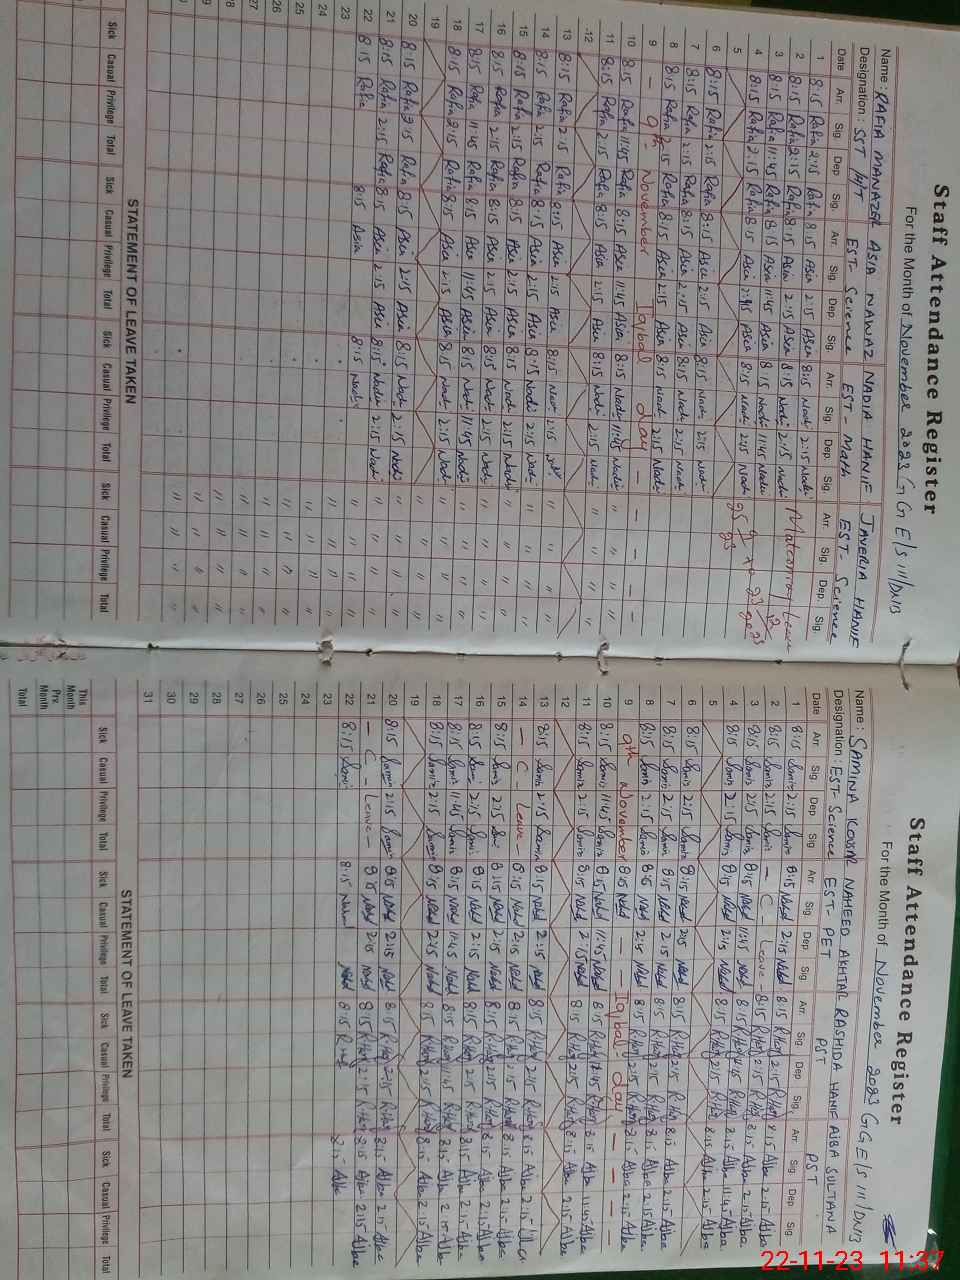 Staff Attendance Register
For the Month of November 2023 GGE/S 111/DNB
Name: RAFIA MANAZER ASIA NAWAZ NADIA HANIF JAVERIA HANIF
Designation: SST EST- Science EST- Math EST- Science
Date Arr. Sig Dep Sig Arr. Sig. Dep. Sig. Arr. Sig. Dep. Sig. Arr. Sig. Dep. Sig.
1 8:15 Rafia 2:15 Rafia 8:15 Asia 2:15 Asia 8:15 Nadi 2:15 Nadi
2 8:15 Rafia 2:15 Rafia 8:15 Asia 2:15 Asia 8:15 Nadi 2:15 Nadi Leave
3 8:15 Rafia 11:45 Rafia 8:15 Asia 11:45 Asia 8:15 Nadi 11:45 Nadi
4 8:15 Rafia 2:15 Rafia 8:15 Asia 2:15 Asia 8:15 Nadi 2:15 Nadi
5
6 8:15 Rafia 2:15 Rafia 8:15 Asia 2:15 Asia 8:15 Nadi 2:15 Nadi
7 8:15 Rafia 2:15 Rafia 8:15 Asia 2:15 Asia 8:15 Nadi 2:15 Nadi
8 8:15 Rafia 2:15 Rafia 8:15 Asia 2:15 Asia 8:15 Nadi 2:15 Nadi
9 — 9th November Iqbal day — — —
10 8:15 Rafia 11:45 Rafia 8:15 Asia 11:45 Asia 8:15 Nadi 11:45 Nadi " — — —
11 8:15 Rafia 2:15 Rafia 8:15 Asia 2:15 Asia 8:15 Nadi 2:15 Nadi " " " "
12
13 8:15 Rafia 2:15 Rafia 8:15 Asia 2:15 Asia 8:15 Nadi 2:15
14 8:15 Rafia 2:15 Rafia 8:15 Asia 2:15 Asia 8:15 Nadi 2:15 Nadi " " " "
15 8:15 Rafia 2:15 Rafia 8:15 Asia 2:15 Asia 8:15 Nadi 2:15 Nadi " " " "
16 8:15 Rafia 2:15 Rafia 8:15 Asia 2:15 Asia 8:15 Nadi 2:15 Nadi " " " "
17 8:15 Rafia 11:45 Rafia 8:15 Asia 11:45 Asia 8:15 Nadi 11:45 Nadi " " " "
18 8:15 Rafia 2:15 Rafia 8:15 Asia 2:15 Asia 8:15 Nadi 2:15 Nadi " " " "
19
20 8:15 Rafia 2:15 Rafia 8:15 Asia 2:15 Asia 8:15 Nadi 2:15 Nadi " " " "
21 8:15 Rafia 2:15 Rafia 8:15 Asia 2:15 Asia 8:15 Nadi 2:15 Nadi " " " "
22 8:15 Rafia 8:15 Asia 8:15 Nadi " " " "
23 " " " "
24 " " " "
25 " " " "
26 " " " "
27 " " " "
28 " " " "
29 " " " "
STATEMENT OF LEAVE TAKEN
Sick Casual Privilege Total Sick Casual Privilege Total Sick Casual Privilege Total Sick Casual Privilege Total
Staff Attendance Register
For the Month of November 2023 GGE/S 111/DNB
Name: SAMINA KOUSAR NAHEED AKHTAR RASHIDA HANIF AIBA SULTANA
Designation: EST- Science EST- PET PST PST
Date Arr. Sig Dep Sig Arr. Sig. Dep. Sig Arr. Sig. Dep Sig. Arr. Sig Dep Sig.
1 8:15 Samin 2:15 Samin 8:15 Nahd 2:15 Nahd 8:15 R.Han 2:15 R.Han 8:15 Aiba 2:15 Aiba
2 8:15 Samin 2:15 Samin — C — Leave — 8:15 R.Han 2:15 R.Han 8:15 Aiba 2:15 Aiba
3 8:15 Samin Samin 8:15 Nahd 11:45 Nahd 8:15 R.Han 11:45 R.Han 8:15 Aiba 11:45 Aiba
4 8:15 Samin 2:15 Samin 8:15 Nahd 2:15 Nahd 8:15 R.Han 2:15 R.Han 8:15 Aiba 2:15 Aiba
5
6 8:15 Samin 2:15 Samin 8:15 Nahd 2:15 Nahd 8:15 R.Han 2:15 R.Han 8:15 Aiba 2:15 Aiba
7 8:15 Samin 2:15 Samin 8:15 Nahd 2:15 Nahd 8:15 R.Han 2:15 R.Han 8:15 Aiba 2:15 Aiba
8 8:15 Samin 2:15 Samin 8:15 Nahd 2:15 Nahd 8:15 R.Han 2:15 R.Han 8:15 Aiba 2:15 Aiba
9 9th November — — Iqbal day — — — —
10 8:15 Samin 11:45 Samin 8:15 Nahd 11:45 Nahd 8:15 R.Han 11:45 R.Han 8:15 Aiba 11:45 Aiba
11 8:15 Samin 2:15 Samin 8:15 Nahd 2:15 Nahd 8:15 R.Han 2:15 R.Han 8:15 Aiba 2:15 Aiba
12
13 8:15 Samin 2:15 Samin 8:15 Nahd 2:15 Nahd 8:15 R.Han 2:15 R.Han 8:15 Aiba 2:15
14 — C — Leave — 8:15 Nahd 2:15 Nahd 8:15 R.Han 2:15 R.Han 8:15 Aiba 2:15 Aiba
15 8:15 Samin 2:15 Samin 8:15 Nahd 2:15 Nahd 8:15 R.Han 2:15 R.Han 8:15 Aiba 2:15 Aiba
16 8:15 Samin 2:15 Samin 8:15 Nahd 2:15 Nahd 8:15 R.Han 2:15 R.Han 8:15 Aiba 2:15 Aiba
17 8:15 Samin 11:45 Samin 8:15 Nahd 11:45 Nahd 8:15 R.Han 11:45 R.Han 8:15 Aiba Aiba
18 8:15 Samin 2:15 Samin 8:15 Nahd 2:15 Nahd 8:15 R.Han 2:15 R.Han 8:15 Aiba 2:15 Aiba
19
20 8:15 Samin 2:15 Samin 8:15 Nahd 2:15 Nahd 8:15 R.Han 2:15 R.Han 8:15 Aiba 2:15 Aiba
21 — C — Leave — 8:15 Nahd 2:15 Nahd 8:15 R.Han 2:15 R.Han 8:15 Aiba 2:15 Aiba
22 8:15 Samin 8:15 Nahd 8:15 8:15 Aiba
23
24
25
26
27
28
29
30
31
STATEMENT OF LEAVE TAKEN
Sick Casual Privilege Total Sick Casual Privilege Total Sick Casual Privilege Total Sick Casual Privilege Total
This Month
Pre. Month
Total
22-11-23 11:37